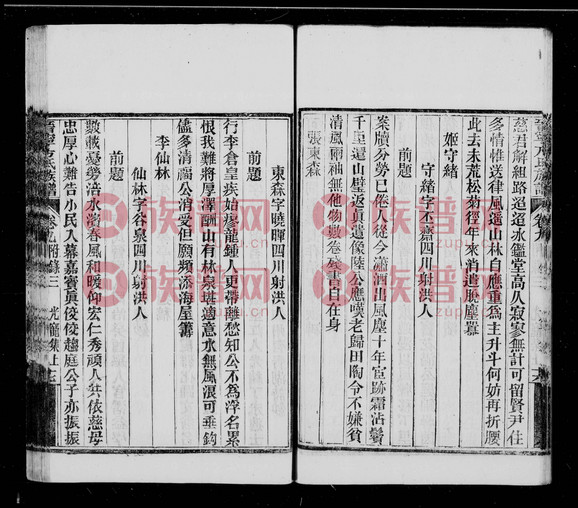 慈君解組路迢迢水鑑堂高夂寂寥無計可留賢尹住
多情惟送律風遥山林自應重為主升斗何妨再折腰
此去未荒松菊徑年來消遣脱塵囂
姬守緒
守緒字丕齋四川射洪人
前題
案牘勞已倦人從今瀟洒出風塵十年宦跡霜沾鬢
千里還山璧返真遺像陸公應嘆老歸田陶令不嫌貧
清風兩袖無他物數卷殘書自在身
張東森
東森字曉暉四川射洪人
前題
行李倉皇疾始瘳龍鍾人更帶離愁知公不為浮名累
恨我難將厚澤酬山有林泉堪適意水無風浪可垂鈎
儘多清福公消受但願頻添海屋籌
李仙林
仙林字谷泉四川射洪人
前題
數載憂勞涪水濱春風和暖仰宏仁秀頑人共依慈母
忠厚心難告小民入幕嘉賓真佼佼趨庭公子亦振振
族譜
卷九附錄三
族譜网
zupu.cn